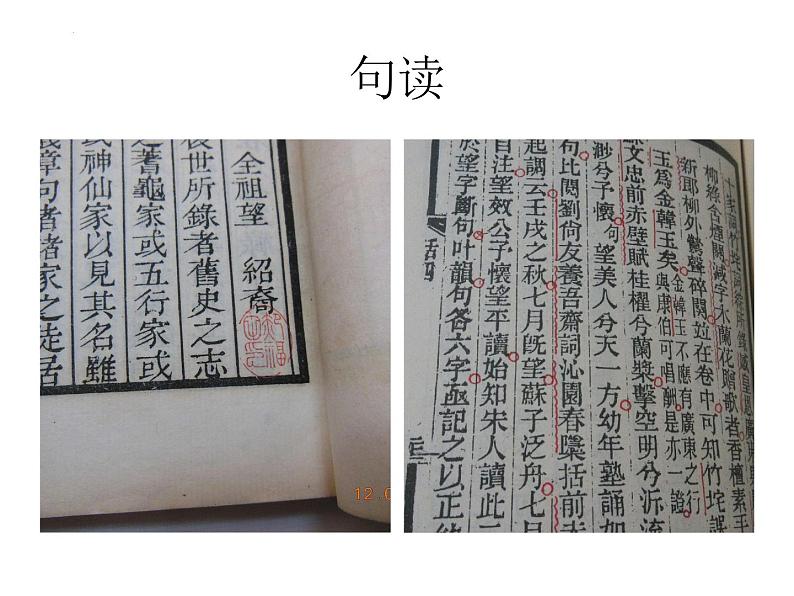 句读
全祖望 紹裔
世所錄者舊史之志
之蓍龜家或五行家或
神仙家以見其名雖
章句者諸家之徒居
柳綠含煙闋減字木蘭花贈歌者香檀素手
新耶柳外鸞聲碎闋竝在卷中可知竹垞誤
玉爲金韓玉矣金韓玉不應有廣東之行
與康伯可唱酬是亦一證
文忠前赤壁賦桂櫂兮蘭槳擊空明兮泝流
渺兮予懷句望美人兮天一方幼年塾誦如
句比閱劉尙友養吾齋詞沁園春檃括前
起調云壬戌之秋七月旣望蘇子泛舟七月
自注望效公予懷望平讀始知宋人讀此二
於望字斷句叶韻句各六字亟記之以正
話四
12.0